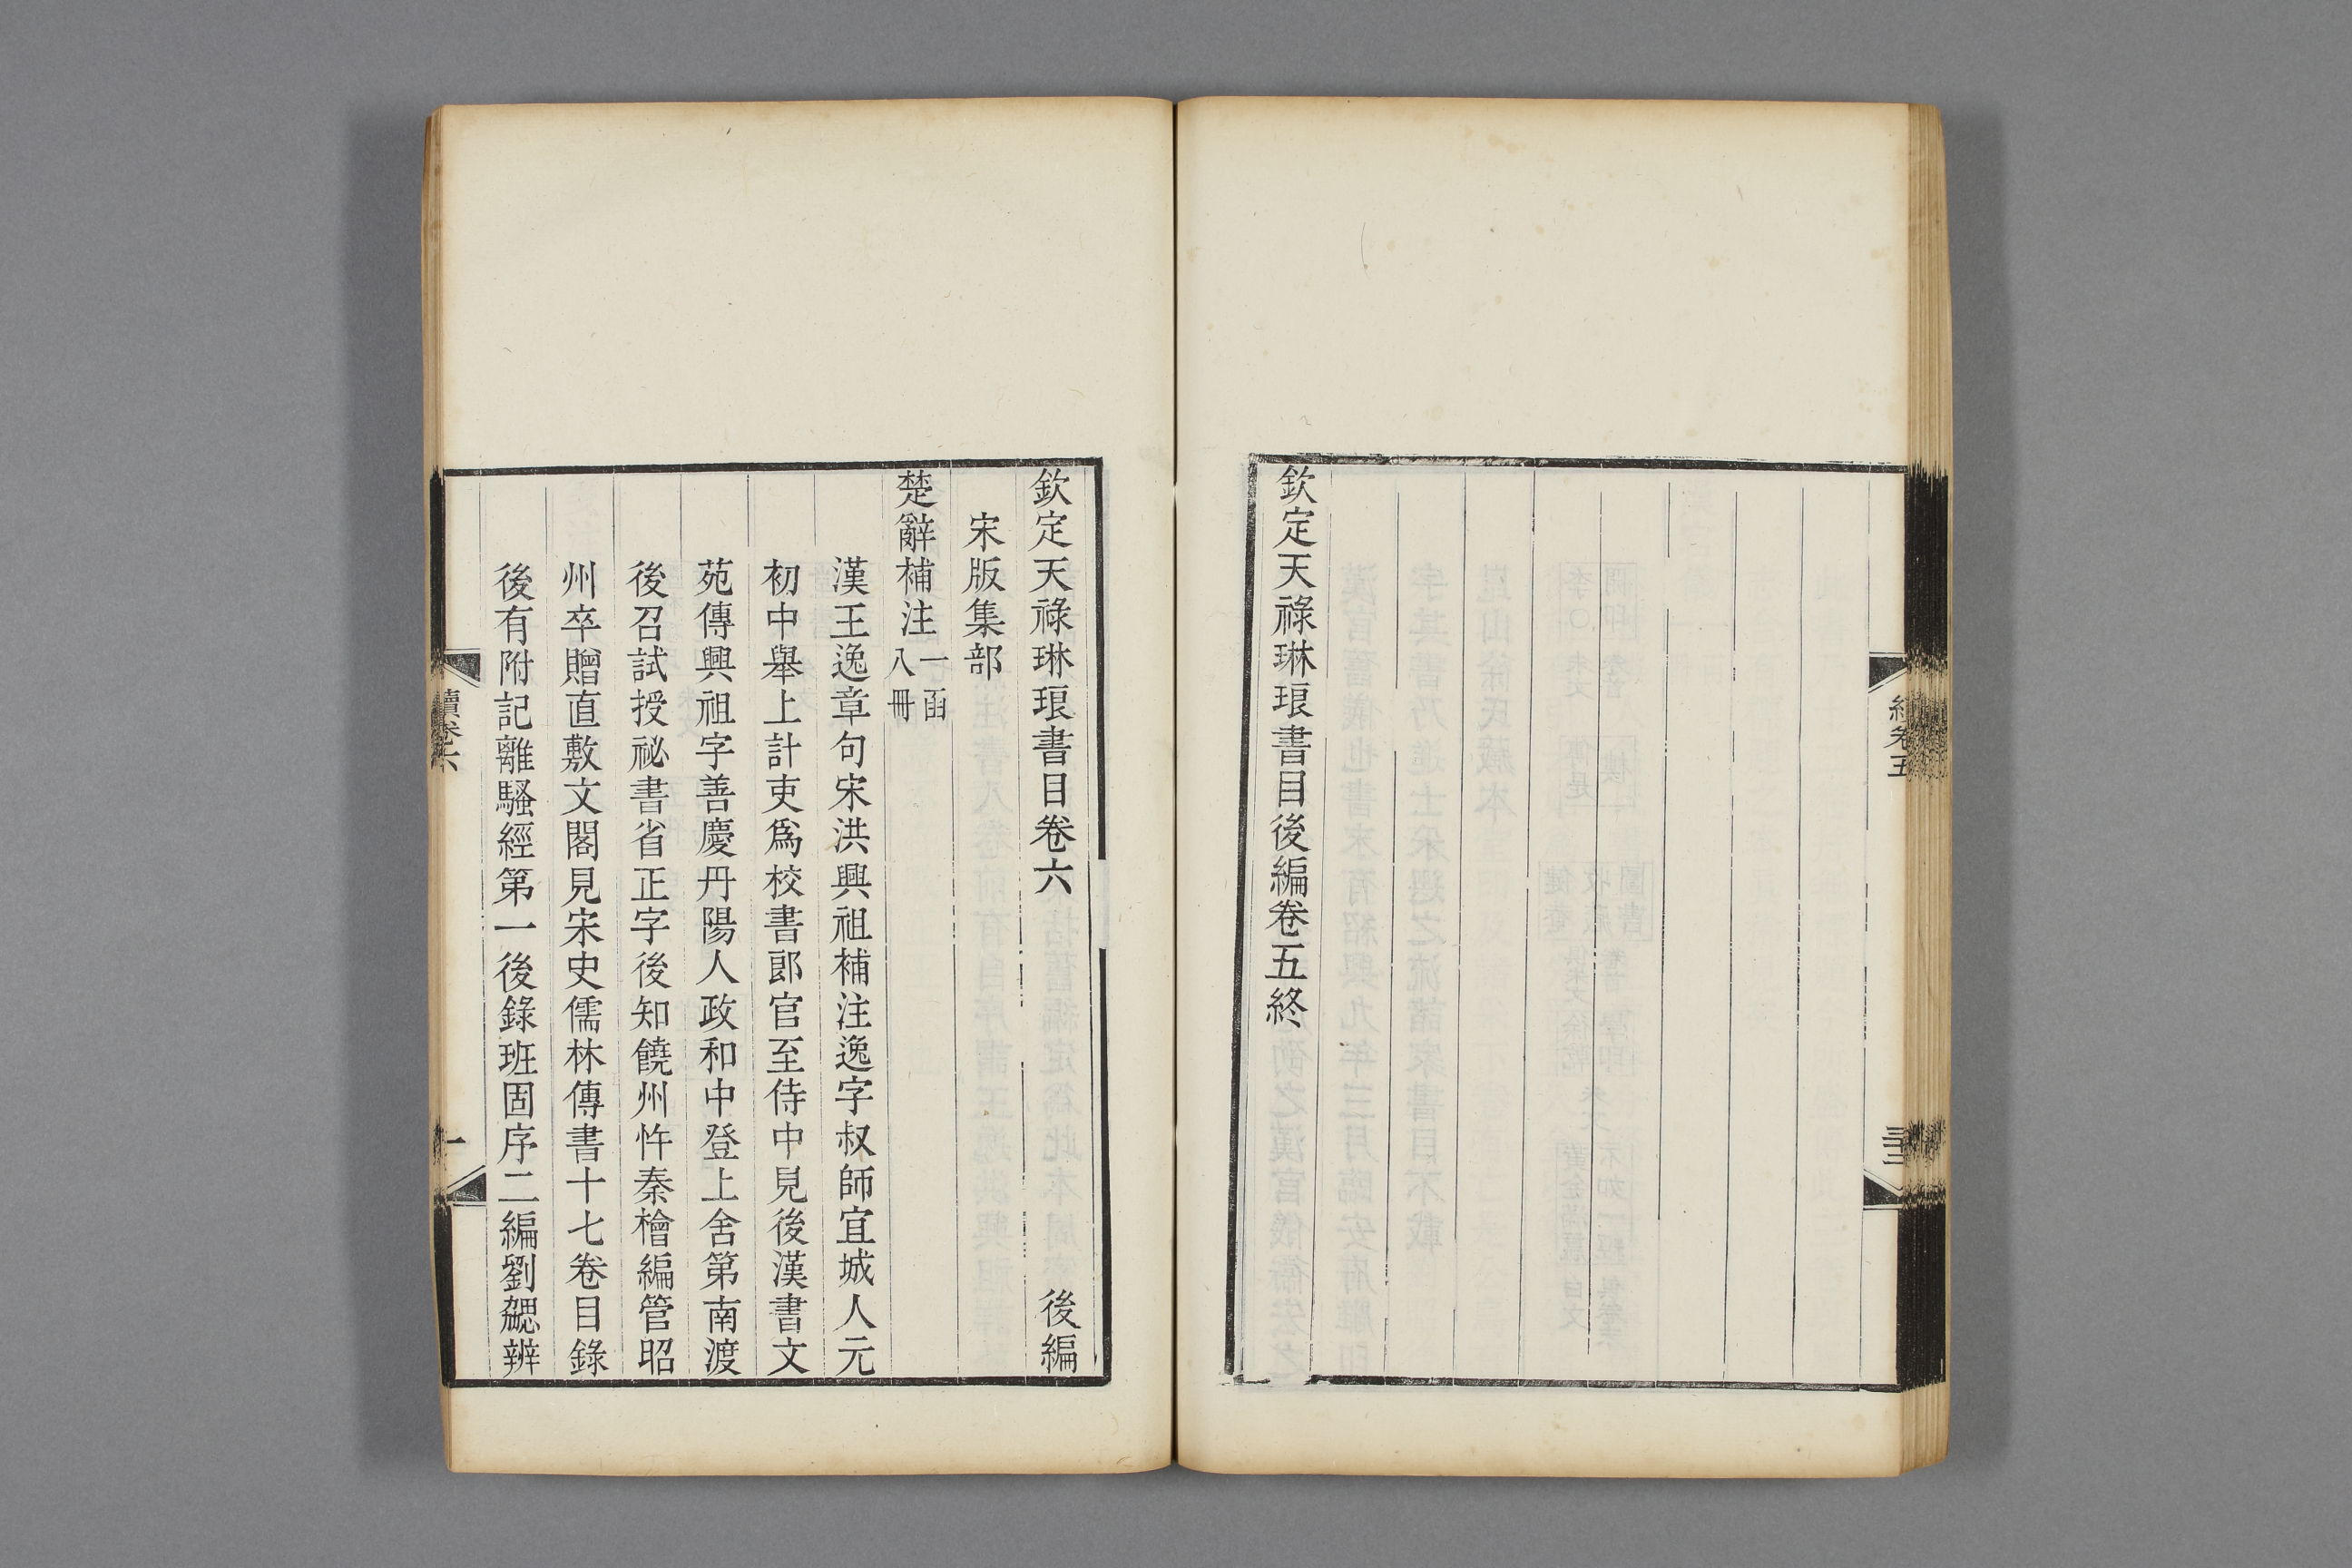 欽定天祿琳琅書目後編卷五終
欽定天祿琳琅書目卷六 後編
宋版集部
楚辭補注 一函 八冊
漢王逸章句宋洪興祖補注逸字叔師宜城人元
初中舉上計吏爲校書郎官至侍中見後漢書文
苑傳興祖字善慶丹陽人政和中登上舍第南渡
後召試授祕書省正字後知饒州忤秦檜編管昭
州卒贈直敷文閣見宋史儒林傳書十七卷目錄
後有附記離騷經第一後錄班固序二編劉勰辨
續卷六
一